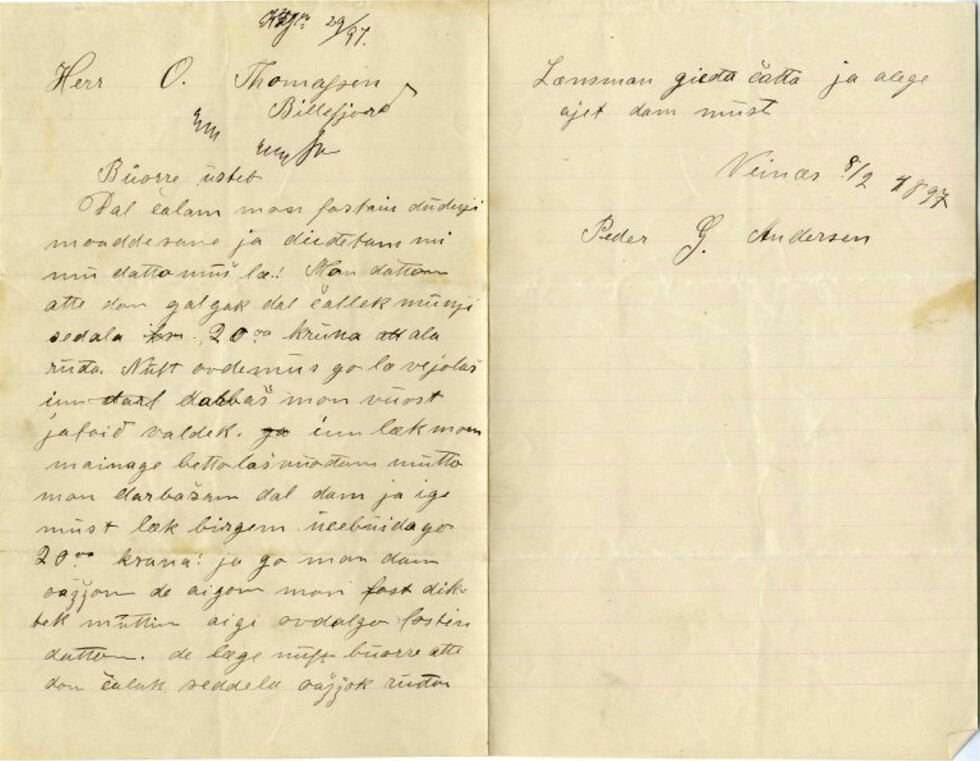 29/97.
Herr O. Thomassen
Billefjord
Buorre ústeb
Dal čalam mon fastain dudnji
moaddesane ja diedetam mi
mu datto muš læ.! Mon dattom
atte don galgak dal čallek munji
sedala 20 00 kruna ala
ruđa. Nuft ovdemus go la vejolaš
inn dabbaš mon vuost
jafoid valdek. inn læk mon
mainage bettolašvuođam mutto
mon darbašam dal dam ja ige
must læk birgem ucebuida go
20 00 kruna! ja go mon dam
oažžom de aigom mon fast dik-
tek muttin aigi ovdalgo fastin
dattom. de læge nuft buorre atte
don čalak seddela oažžok ruđa
Lænsman gieđa čađa ja alege
ajet dam must
Veinæs 8/2 1897
Peder G. Andersen